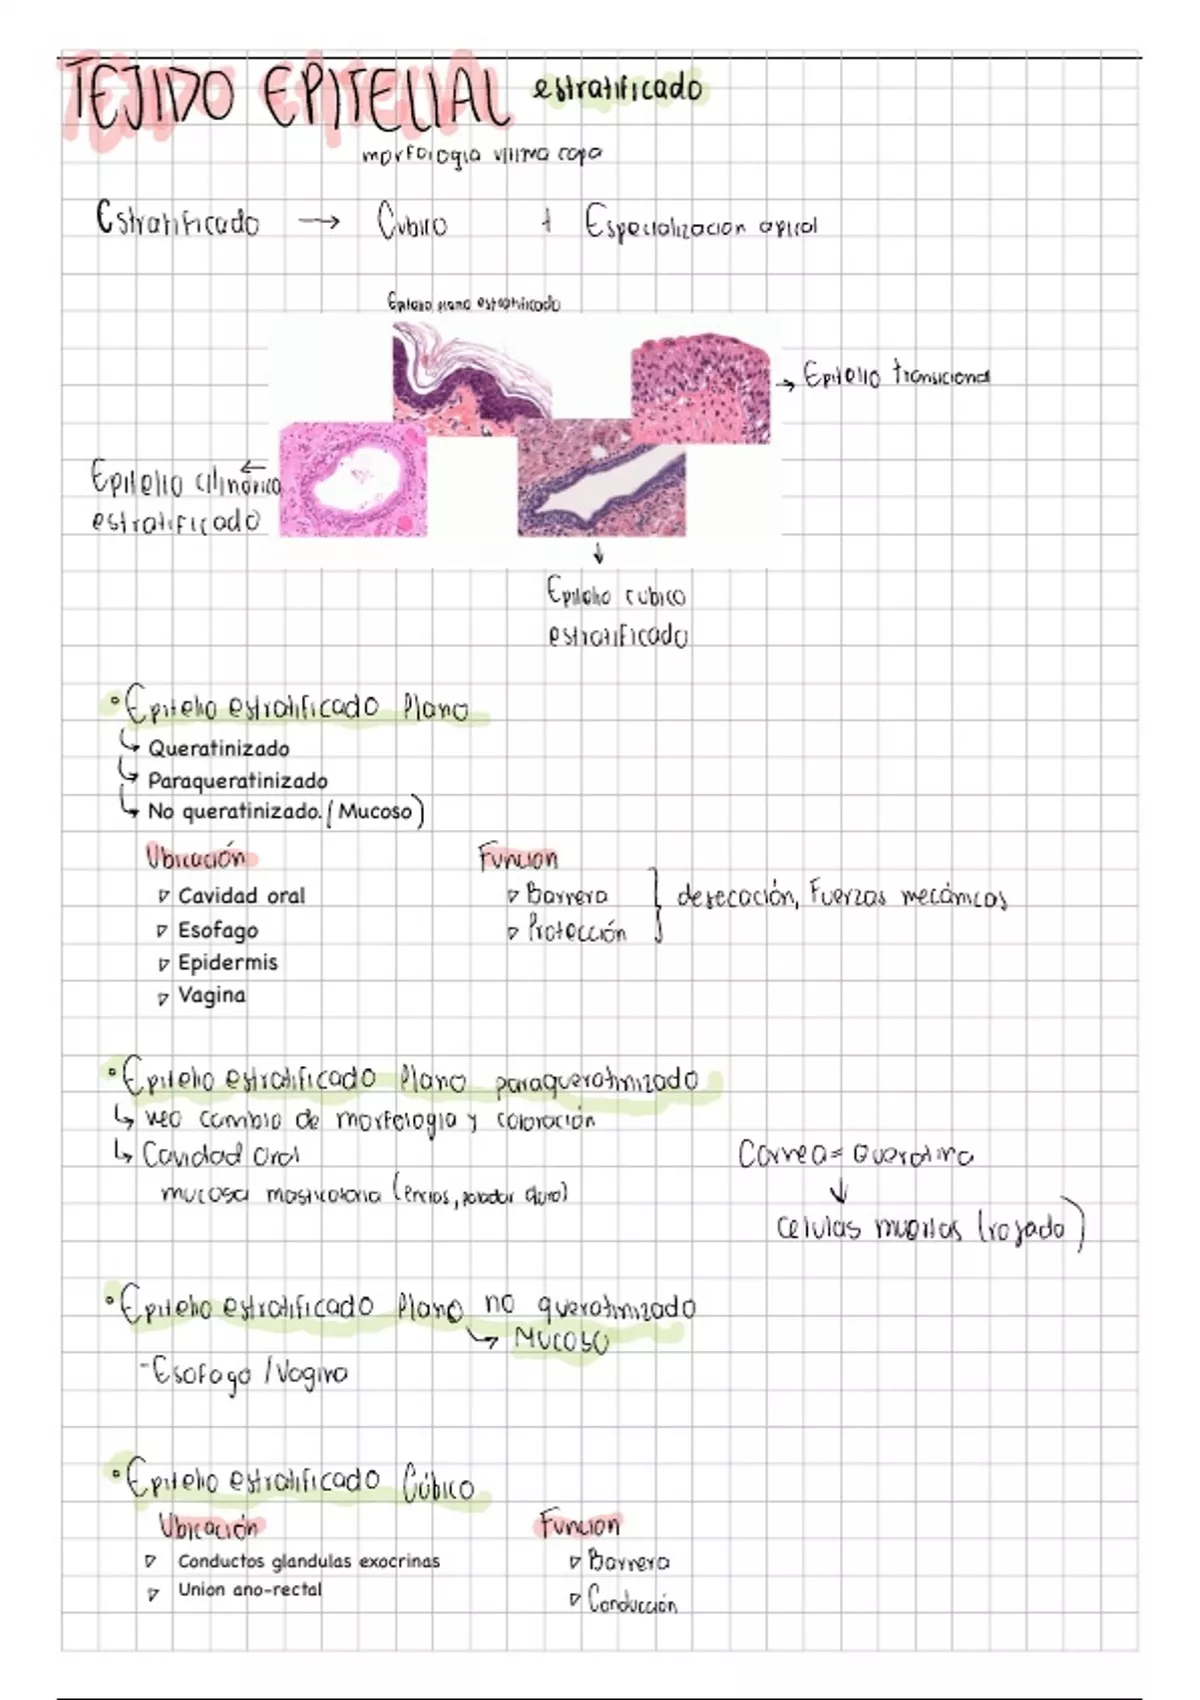 TEJIDO EPITELIAL estratificado
morfologia ultima capa
Estratificado → Cubico + Especializacion apical
Epitelio plano estratificado
→ Epitelio transicional
Epitelio cilindrico ←
estratificado
↓
Epitelio cubico
estratificado
• Epitelio estratificado Plano
↳ Queratinizado
↳ Paraqueratinizado
↳ No queratinizado. (Mucoso)
Ubicación Funcion
▷ Cavidad oral ▷ Barrera } desecación, Fuerzas mecánicas
▷ Esofago ▷ Protección
▷ Epidermis
▷ Vagina
• Epitelio estratificado Plano paraqueratinizado
↳ veo cambio de morfologia y coloración
↳ Cavidad oral
mucosa masticatoria (encias, paladar duro)
Cornea = Queratina
↓
celulas muertas (rosado)
• Epitelio estratificado Plano no queratinizado
↳ Mucoso
- Esofago / Vagina
• Epitelio estratificado Cúbico
Ubicación Funcion
▷ Conductos glandulas exocrinas ▷ Barrera
▷ Union ano-rectal ▷ Conducción